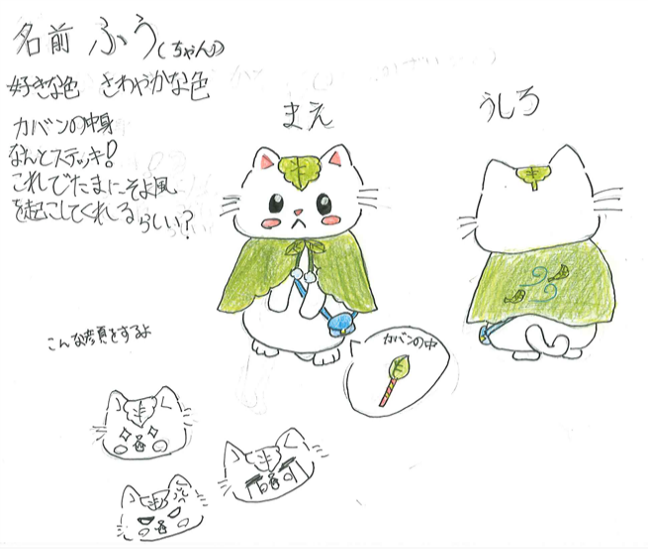 名前 ふう(ちゃん)
好きな色 さわやかな色
カバンの中身
なんとステッキ!
これでたまにそよ風
を起こしてくれるらしい?
まえ
うしろ
カバンの中
こんな顔をするよ